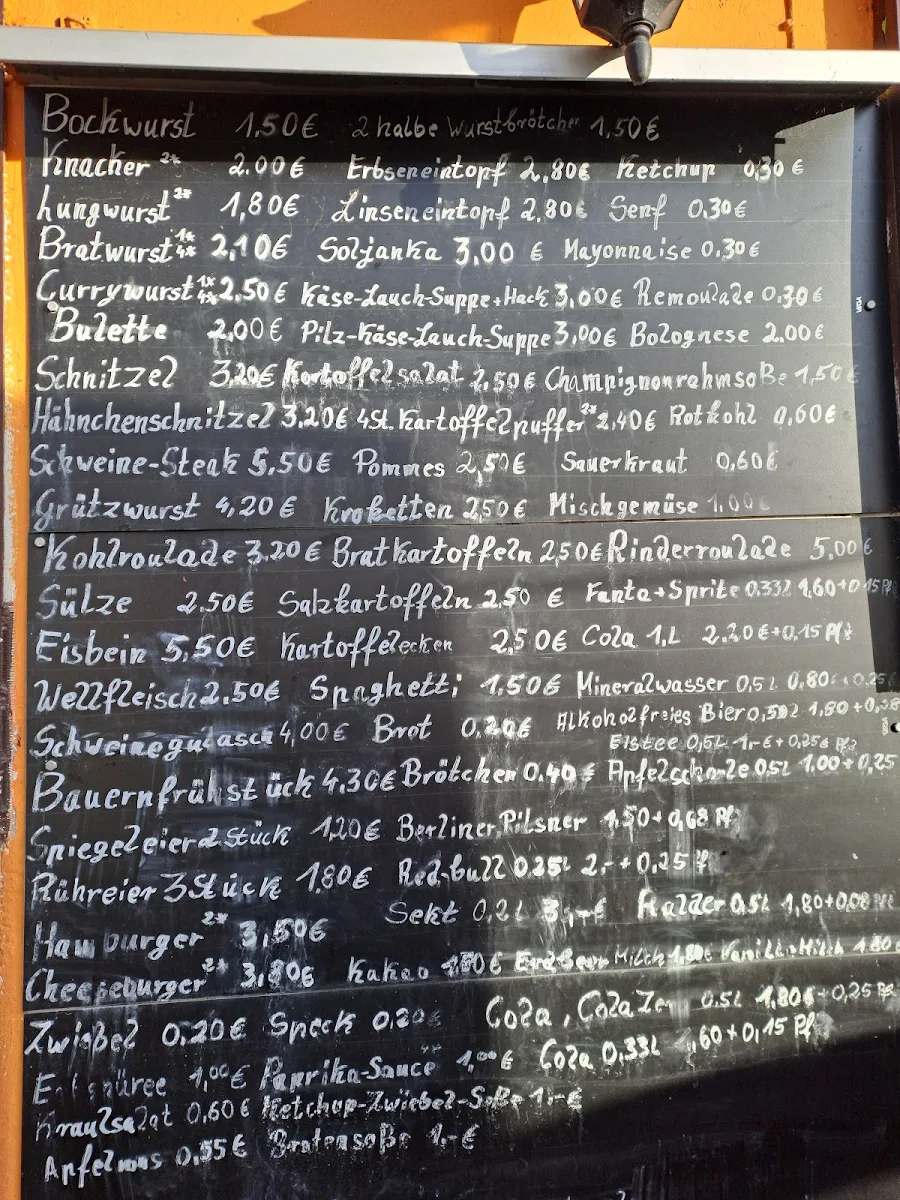 Bockwurst 1,50€ 2 halbe Wurstbrötchen 1,50€
Knacker 2* 2.00€ Erbseneintopf 2,80€ Ketchup 0,30€
Lungwurst 2* 1,80€ Linseneintopf 2,80€ Senf 0.30€
Bratwurst 1* 4* 2,10€ Soljanka 3,00 € Mayonnaise 0.30€
Currywurst 1* 4* 2,50€ Käse-Lauch-Suppe+Hack 3,00€ Remoulade 0.30€
Bulette 2.00€ Pilz-Käse-Lauch-Suppe 3,00€ Bolognese 2.00€
Schnitzel 3,20€ Kartoffelsalat 2,50€ Champignonrahmsoße 1,50€
Hähnchenschnitzel 3.20€ 4St. Kartoffelpuffer 2* 2,40€ Rotkohl 0,60€
Schweine-Steak 5,50€ Pommes 2,50€ Sauerkraut 0,60€
Grützwurst 4,20€ Kroketten 2,50€ Mischgemüse 1,00€
Kohlroulade 3.20€ Bratkartoffeln 2,50€ Rinderroulade 5,00€
Sülze 2.50€ Salzkartoffeln 2,50 € Fanta+Sprite 0.33l 1,60+0,15 Pf
Eisbein 5,50€ Kartoffelecken 2,50€ Cola 1,L 2.20€+0.15 Pf
Wellfleisch 2.50€ Spaghetti 1,50€ Mineralwasser 0,5l 0,80€+0,25€
Schweinegulasch 4,00€ Brot 0,20€ Alkoholfreies Bier 0,5l 1,80+0,08
Eistee 0,5l 1.-€+0,25€ Pf
Bauernfrühstück 4.30€ Brötchen 0.40 € Apfelschorle 0.5l 1.00+0,25
Spiegeleier 2 Stück 1,20€ Berliner, Pilsner 1,50+0,08 Pf
Rühreier 3 Stück 1.80€ Red-bull 0.25l 2.-+0,25 Pf
Hamburger 2* 3,50€ Sekt 0,2l 3,-€ Radler 0,5l 1,80+0,08 Pf
Cheeseburger 2* 3,80€ Kakao 1,80€ Erdbeer Milch 1,80€ Vanille-Milch 1.80€
Zwiebel 0,20€ Speck 0,20€ Cola, Cola Zero 0.5l 1,80€+0,25 Pf
Erbspüree 1,00€ Paprika-Sauce 1,00€ Cola 0,33l 1,60+0,15 Pf
Krautsalat 0.60€ Ketchup-Zwiebel-Soße 1.-€
Apfelmus 0,55€ Bratensoße 1.-€